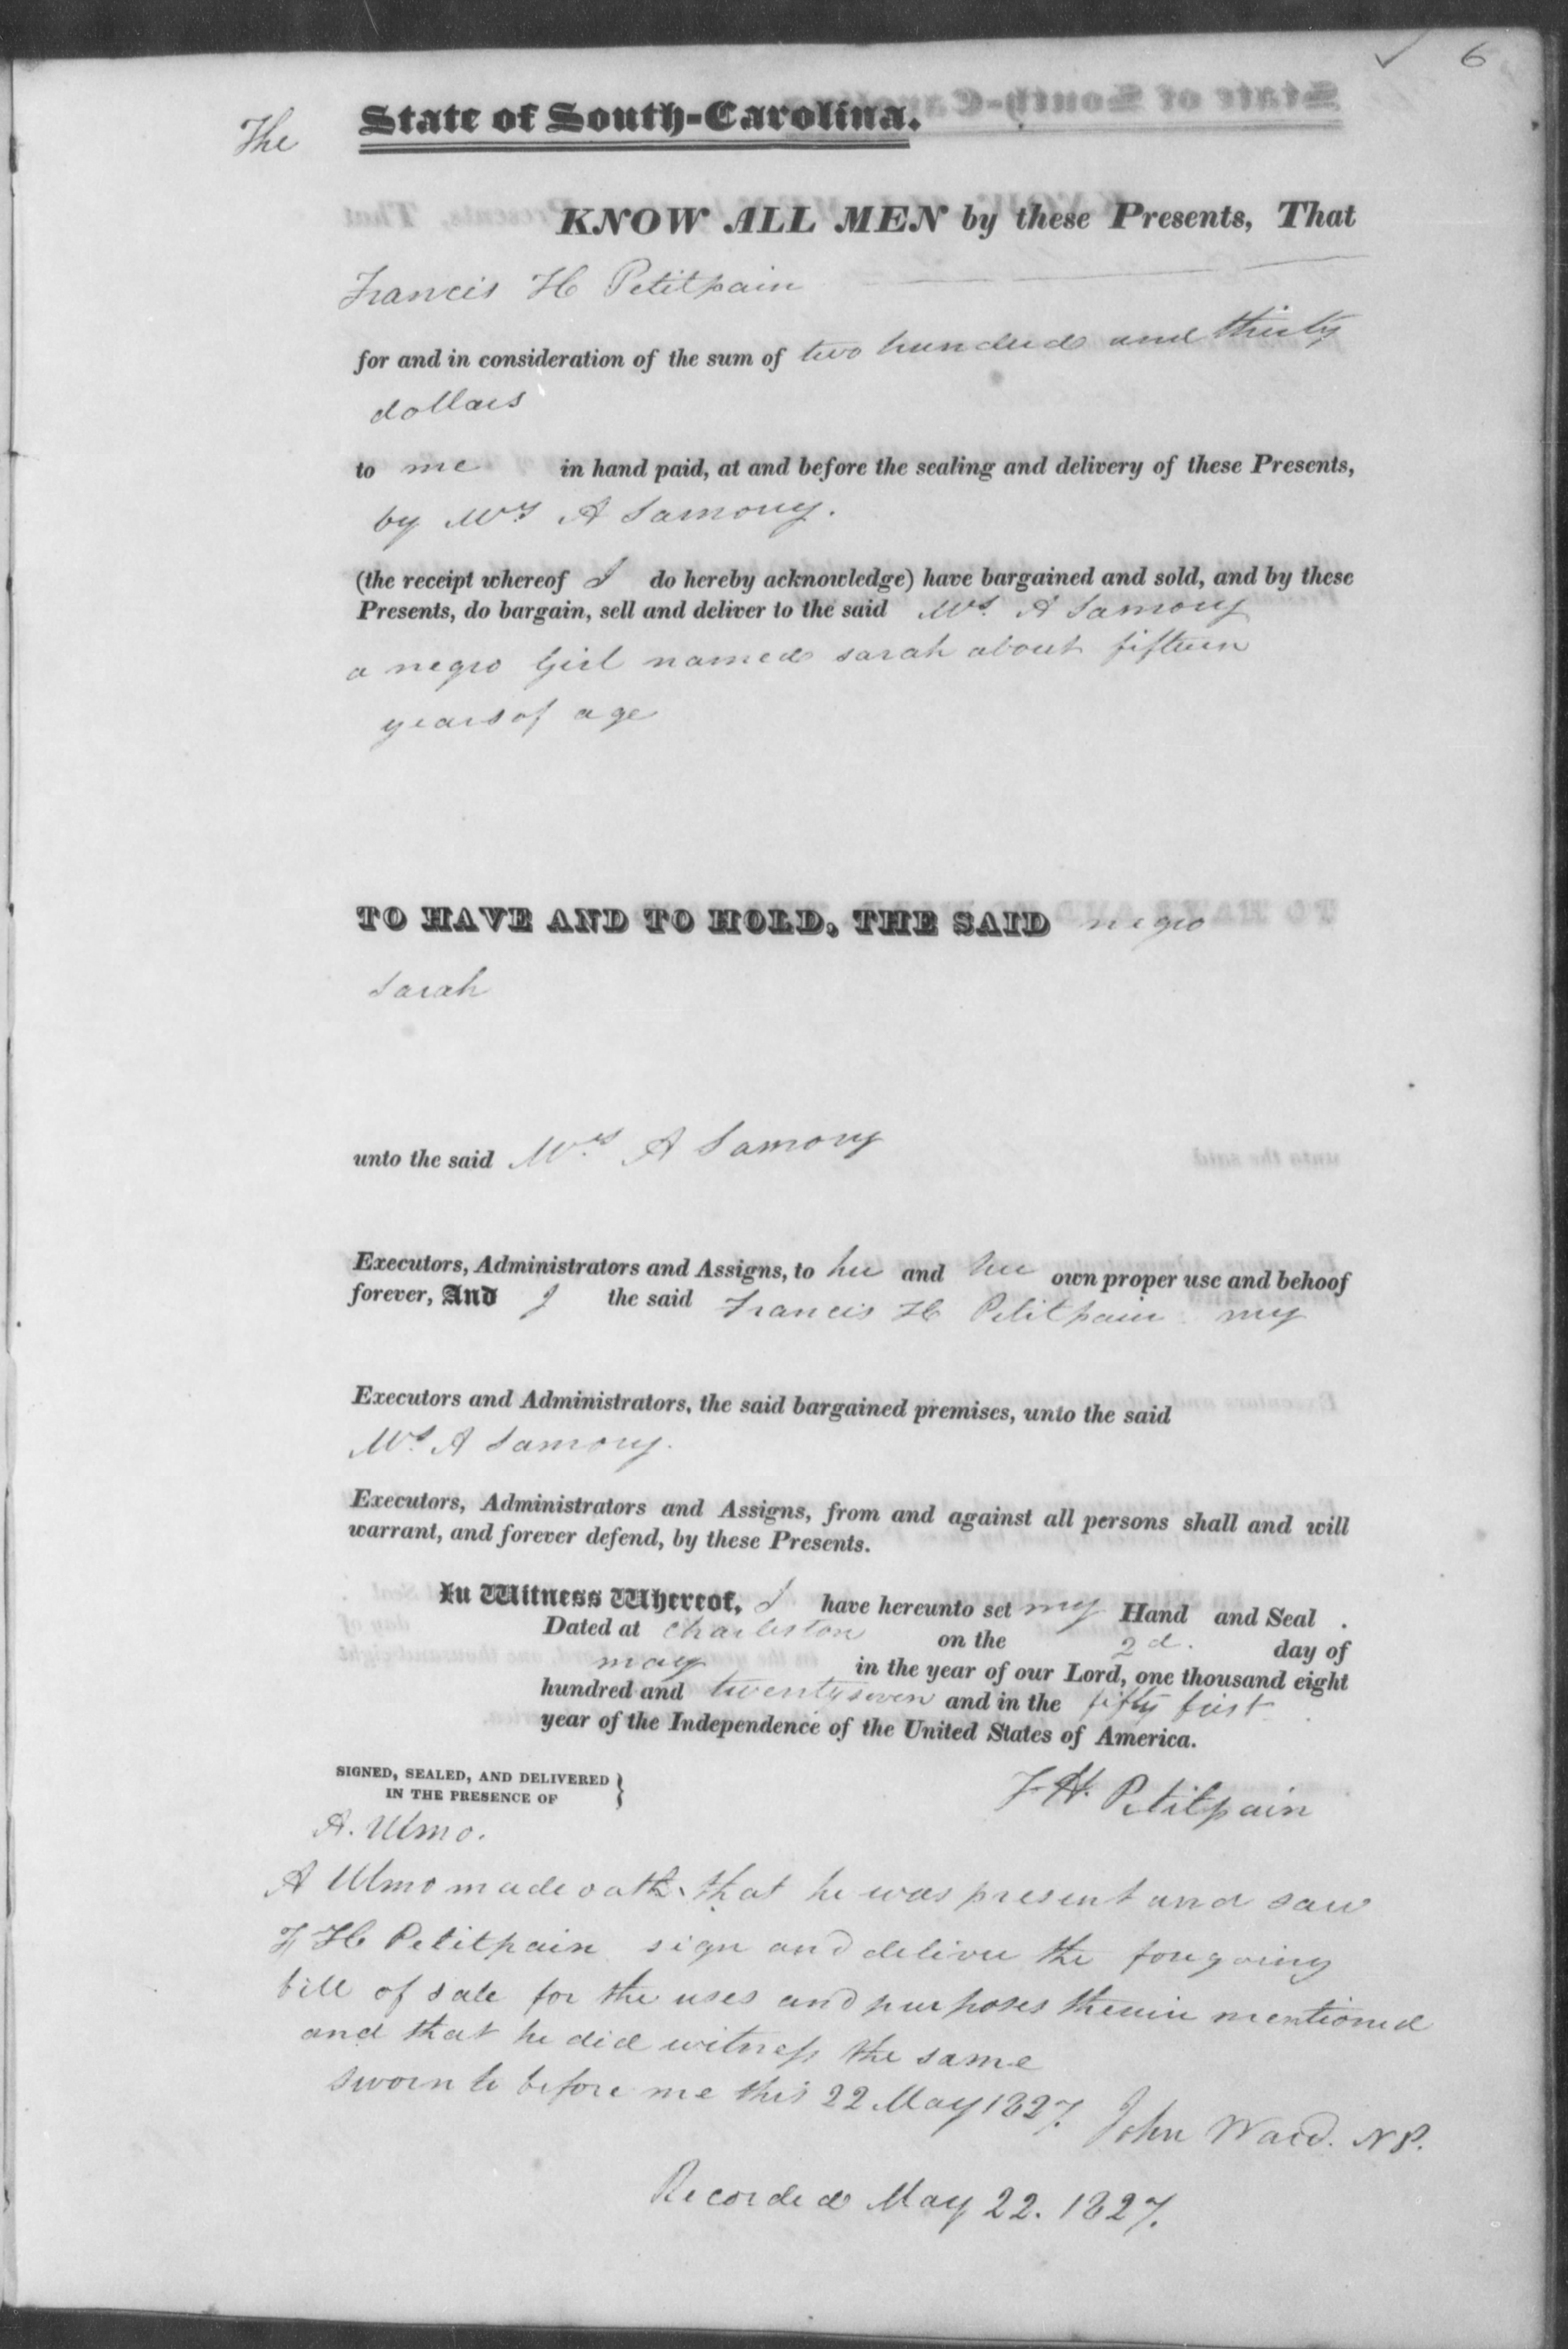 6
The State of South-Carolina.
KNOW ALL MEN by these Presents, That
Francis H Petitpain
for and in consideration of the sum of two hundred and thirty
dollars
to me in hand paid, at and before the sealing and delivery of these Presents,
by Mrs A Samory.
(the receipt whereof I do hereby acknowledge) have bargained and sold, and by these
Presents, do bargain, sell and deliver to the said Mrs. A Samory
a negro Girl named sarah about fifteen
years of age
TO HAVE AND TO HOLD, THE SAID negro
Sarah
unto the said Mrs A Samory
Executors, Administrators and Assigns, to her and her own proper use and behoof
forever, And I the said Francis H Petitpain my
Executors and Administrators, the said bargained premises, unto the said
Mrs. A Samory.
Executors, Administrators and Assigns, from and against all persons shall and will
warrant, and forever defend, by these Presents.
In Witness Whereof, I have hereunto set my Hand and Seal .
Dated at Charleston on the 2d. day of
may in the year of our Lord, one thousand eight
hundred and twenty seven and in the fifty first
year of the Independence of the United States of America.
SIGNED, SEALED, AND DELIVERED }
IN THE PRESENCE OF
F H. Petitpain
A. Ulmo.
A Ulmo made oath that he was present and saw
F H Petitpain sign and deliver the foregoing
bill of sale for the uses and purposes therein mentioned
and that he did witness the same
sworn to before me this 22 May 1827. John Ward. N P.
Recorded May 22. 1827.